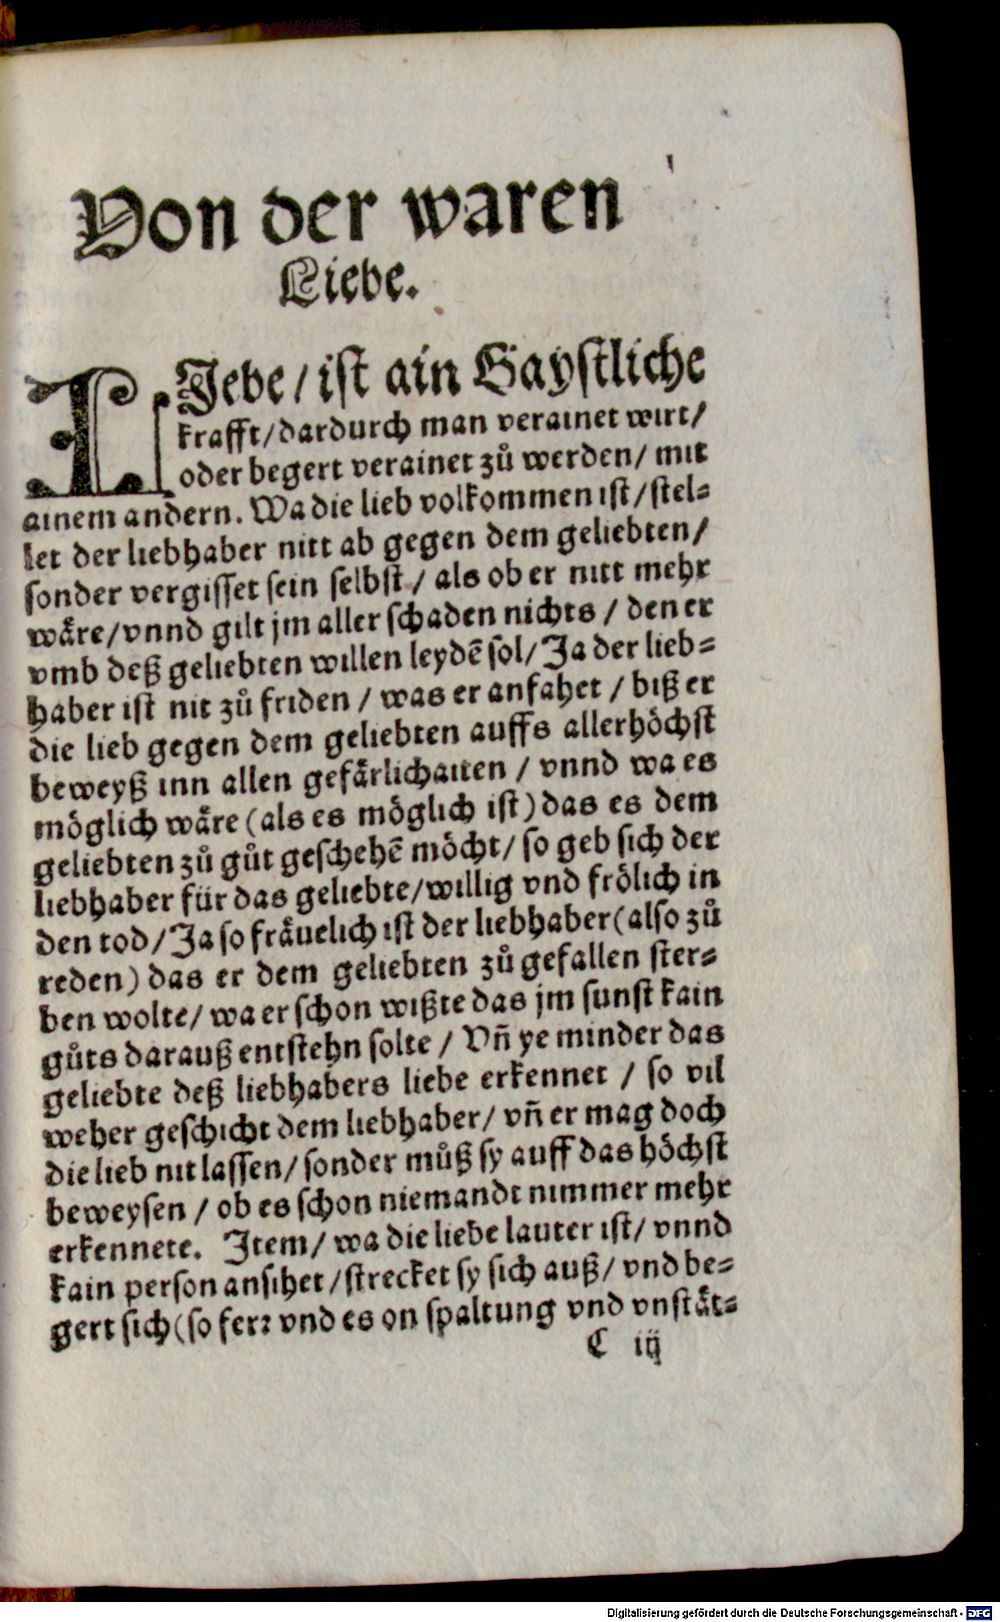 Von der waren
Liebe.
LJebe / ist ain Gaystliche
krafft / dardurch man verainet wirt /
oder begert verainet zů werden / mit
ainem andern. Wa die lieb volkommen ist / stel=
let der liebhaber nitt ab gegen dem geliebten /
sonder vergisset sein selbst / als ob er nitt mehr
wåre / vnnd gilt jm aller schaden nichts / den er
vmb deß geliebten willen leydẽ sol / Ja der lieb=
haber ist nit zů friden / was er anfahet / biß er
die lieb gegen dem geliebten auffs allerhöchst
beweyß inn allen gefärlichaiten / vnnd wa es
möglich wåre (als es möglich ist) das es dem
geliebten zů gůt geschehẽ möcht / so geb sich der
liebhaber für das geliebte / willig vnd frölich in
den tod / Ja so fräuelich ist der liebhaber (also zů
reden) das er dem geliebten zů gefallen ster=
ben wolte / wa er schon wißte das jm sunst kain
gůts darauß entstehn solte / Vñ ye minder das
geliebte deß liebhabers liebe erkennet / so vil
weher geschicht dem liebhaber / vñ er mag doch
die lieb nit lassen / sonder můß sy auff das höchst
beweysen / ob es schon niemandt nimmer mehr
erkennete. Item / wa die liebe lauter ist / vnnd
kain person ansihet / strecket sy sich auß / vnd be=
gert sich (so ferr vnd es on spaltung vnd vnståt=
C iij
Digitalisierung gefördert durch die Deutsche Forschungsgemeinschaft - DFG